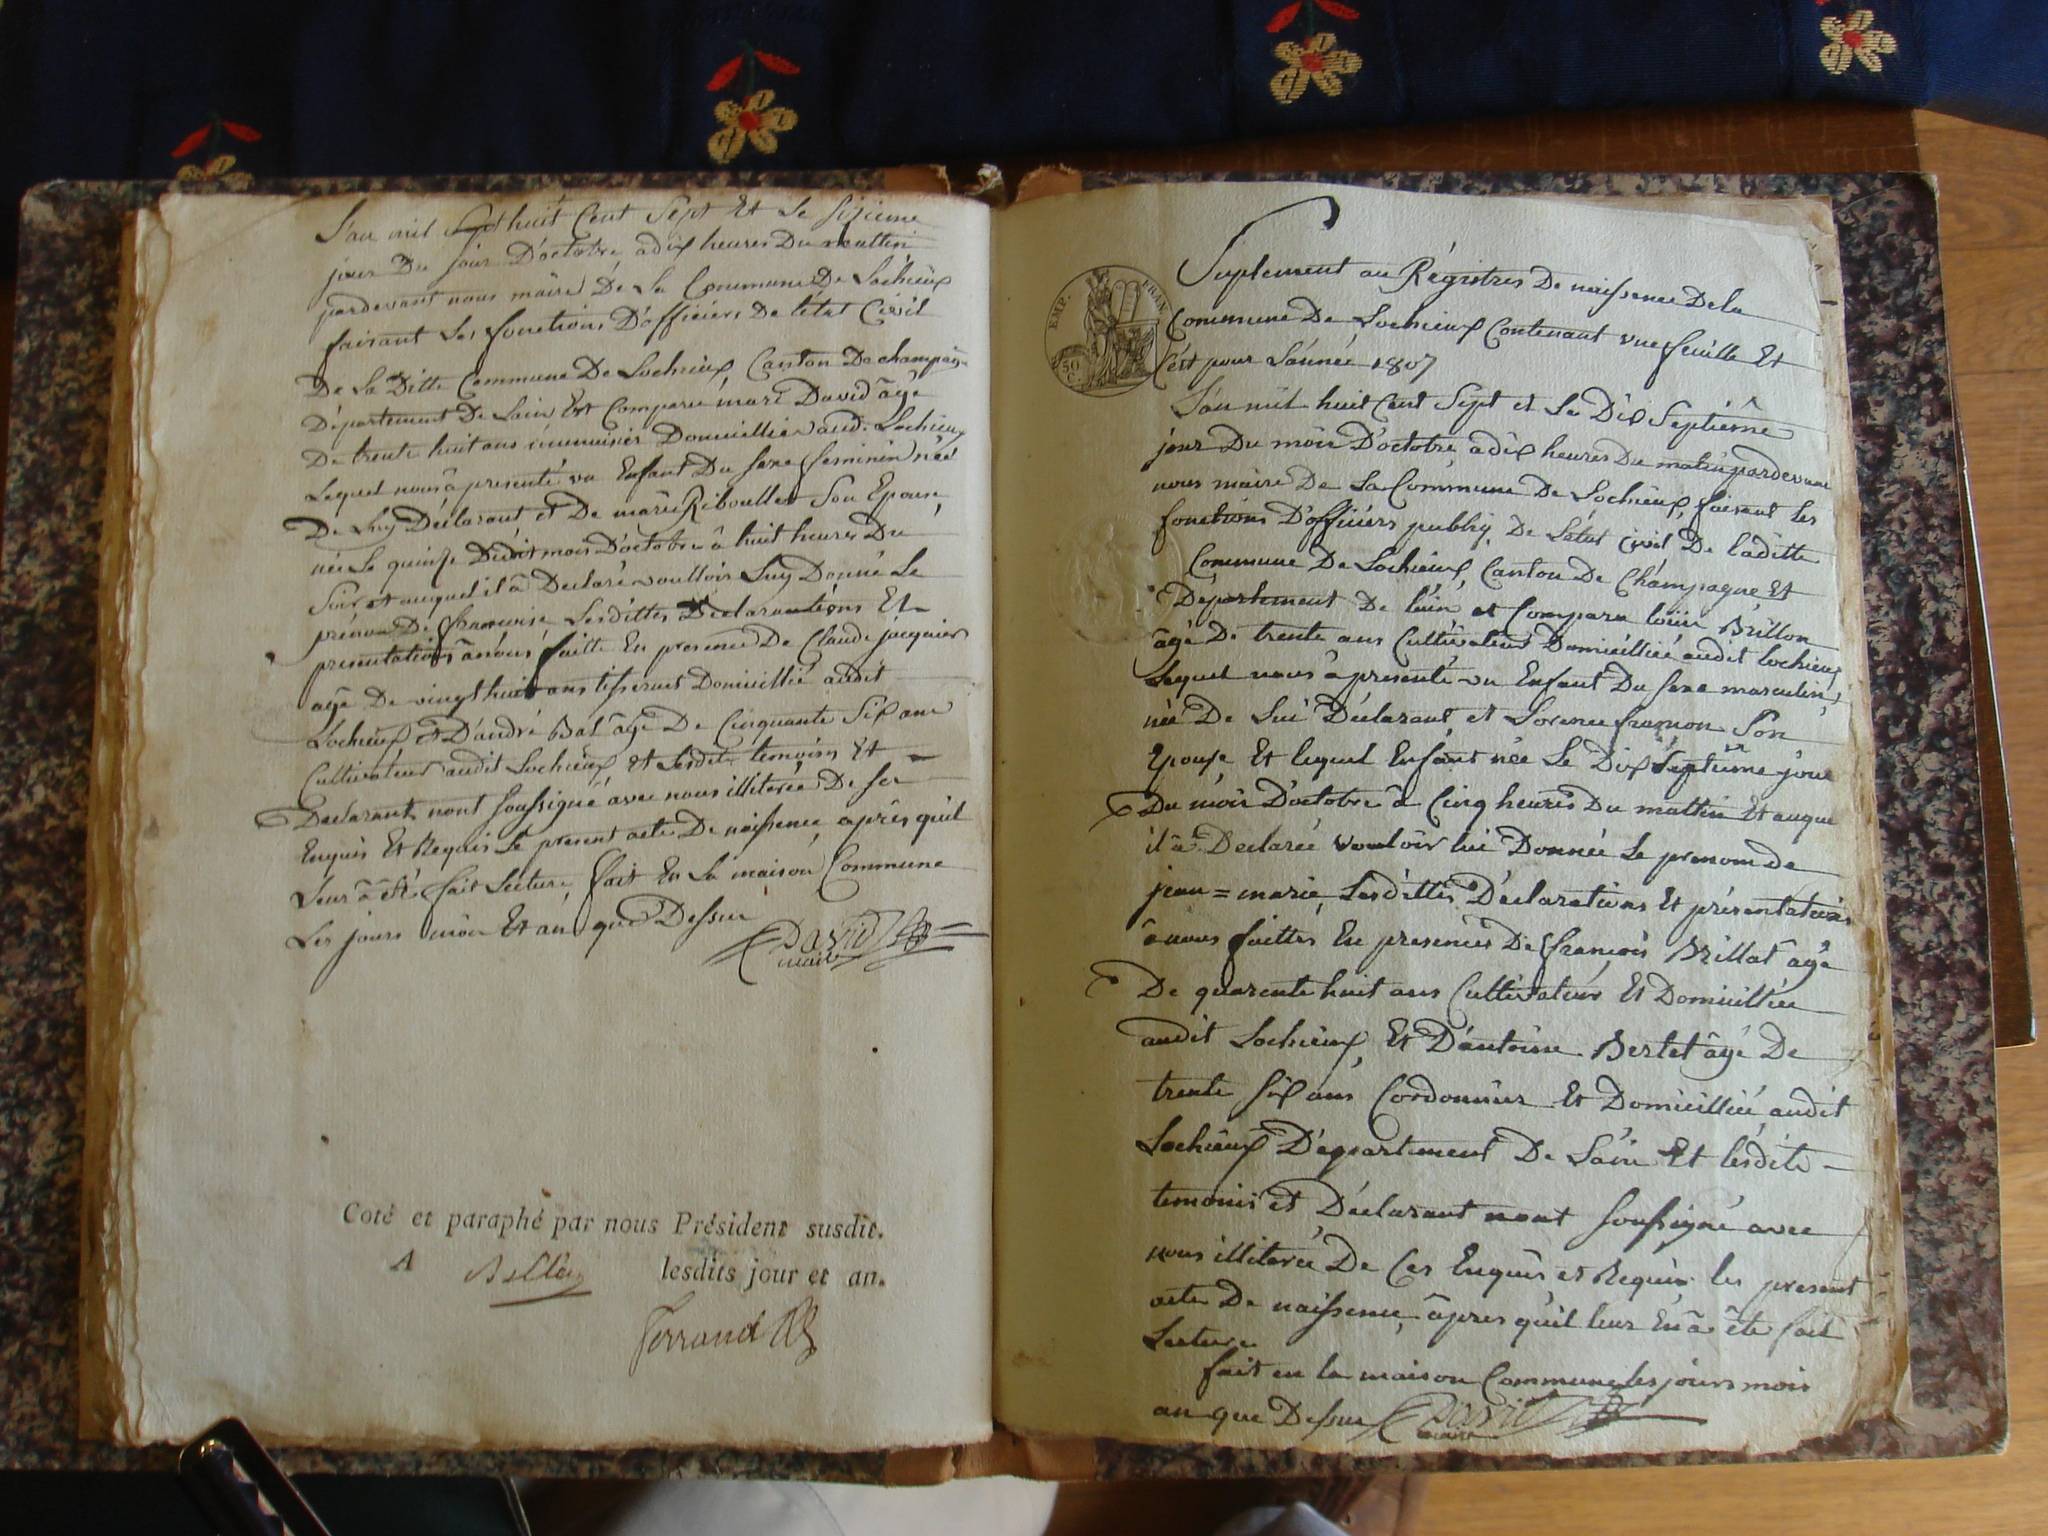 L'an mil huit Cent Sept Et Le sizieme
jour Du jour D'octobre, a dix heures Du mattin
pardevant nous maire De La Commune De Lochieux
faisant Les fonctions D'officiers De l'état Civil
De La Ditte Commune De Lochieux, Canton De champagne
Département De Lain Est Comparu David âgé
De trente huit ans Domicillié aud. Lochieux
Lequel nous â presenté un Enfant Du sexe feminin née
De Luy Déclarant et De marie Riboullet Son Epouse
née Le quinze Dudit mois D'octobre â huit heures Du
Soir et auquel il â Declaré voulloir Luy Donné Le
prénom De francoise Lesdittes Declarautions Et
presentations ânous faitte En presence De Claude jacquier
agé De vingt huit ans tisserant Domicillié audit
Lochieux Et D'andré Bal âgé De Cinquante Six ans
Cultivateur audit Lochieux et Lesdits temoins Et
Declarant nont soussigné avec nous illiterée De ser
Enquis Et Requis Le present acte De naissence, après quil
Leur â êté fait Lecture, fait En La maison Commune
Les jours mois Et an que Dessus
David
maire
Coté et paraphé par nous Président susdit.
A Belley lesdits jour et an.
Ferrand
EMP. FRAN.
50
C.
Suplement au Régistres De naissence De la
Commune De Lochieux Contenant une feuille Et
C'est pour L'année 1807
L'an mil huit Cent Sept et Le Dix Septième
jour Du mois D'octobre â dix heures Du matin pardevant
nous maire De La Commune De Lochieux, faisant Les
fonctions D'officiers publiq. De L'état Civil De Laditte
Commune De Lochieux, Canton De Champagne Et
Département De L'ain et Comparu Brillon
âgé De trente ans Cultivateur Domicilliée audit Lochieux
Lequel nous â presenté un Enfant Du sexe masculin,
née De Lui Déclarant et Lorence Son
Epouse Et lequel Enfant née Le Dix Septième jour
Du mois D'octobre â Cinq heures Du mattin Et auque
il â Declarée vouloir lui Donnée Le prenom de
jean = marie, Lesdittes Déclarations Et présentations
â nous faittes En presences De françois Brillat âgé
De quarente huit ans Cultivateur Et Domicilliée
audit Lochieux, Et D'antoine Bertet âgé De
trente six ans Cordonnier Et Domicilliée audit
Lochieux Département De L'ain Et lesdits
temonis et Déclarant nont soussigné avec
nous illiterée De Ces Enquis et Requis les present
acte De naissence, âpres qu'il leur En â êté fait
Lecture
fait en la maison Commune les jours mois
an que Dessus David
maire